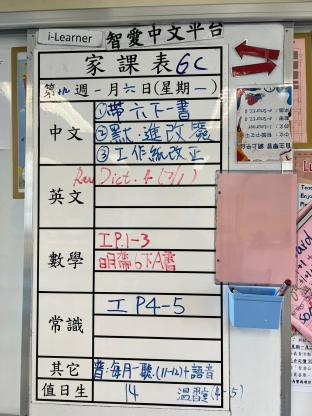 i-Learner 智愛中文平台
家課表 6C
第十九週 一月六日(星期一)
中文
①帶六下一書
②默.進改簽
③工作紙改正
英文
Rev Dict. 4 (7/1)
數學
工P.1-3
明帶6下A書
常識
工 P4-5
其它
普:每月一聽.(11-12)+語音
值日生
14
溫習(4-5)